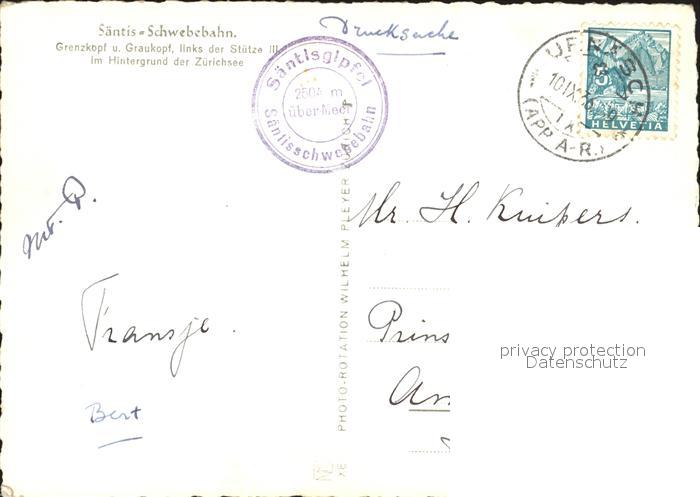 Säntis-Schwebebahn.
Grenzkopf u. Graukopf, links der Stütze III
im Hintergrund der Zürichsee
Drucksache
Säntisgipfel
2504 m
über Meer
Säntisschwebebahn
URNÄSCH
(APP. A-R.)
5
HELVETIA
Mr. H. Kuipers.
Fransje.
Bert
Prins
Am
PHOTO-ROTATION WILHELM PLEYER ZÜRICH
privacy protection
Datenschutz